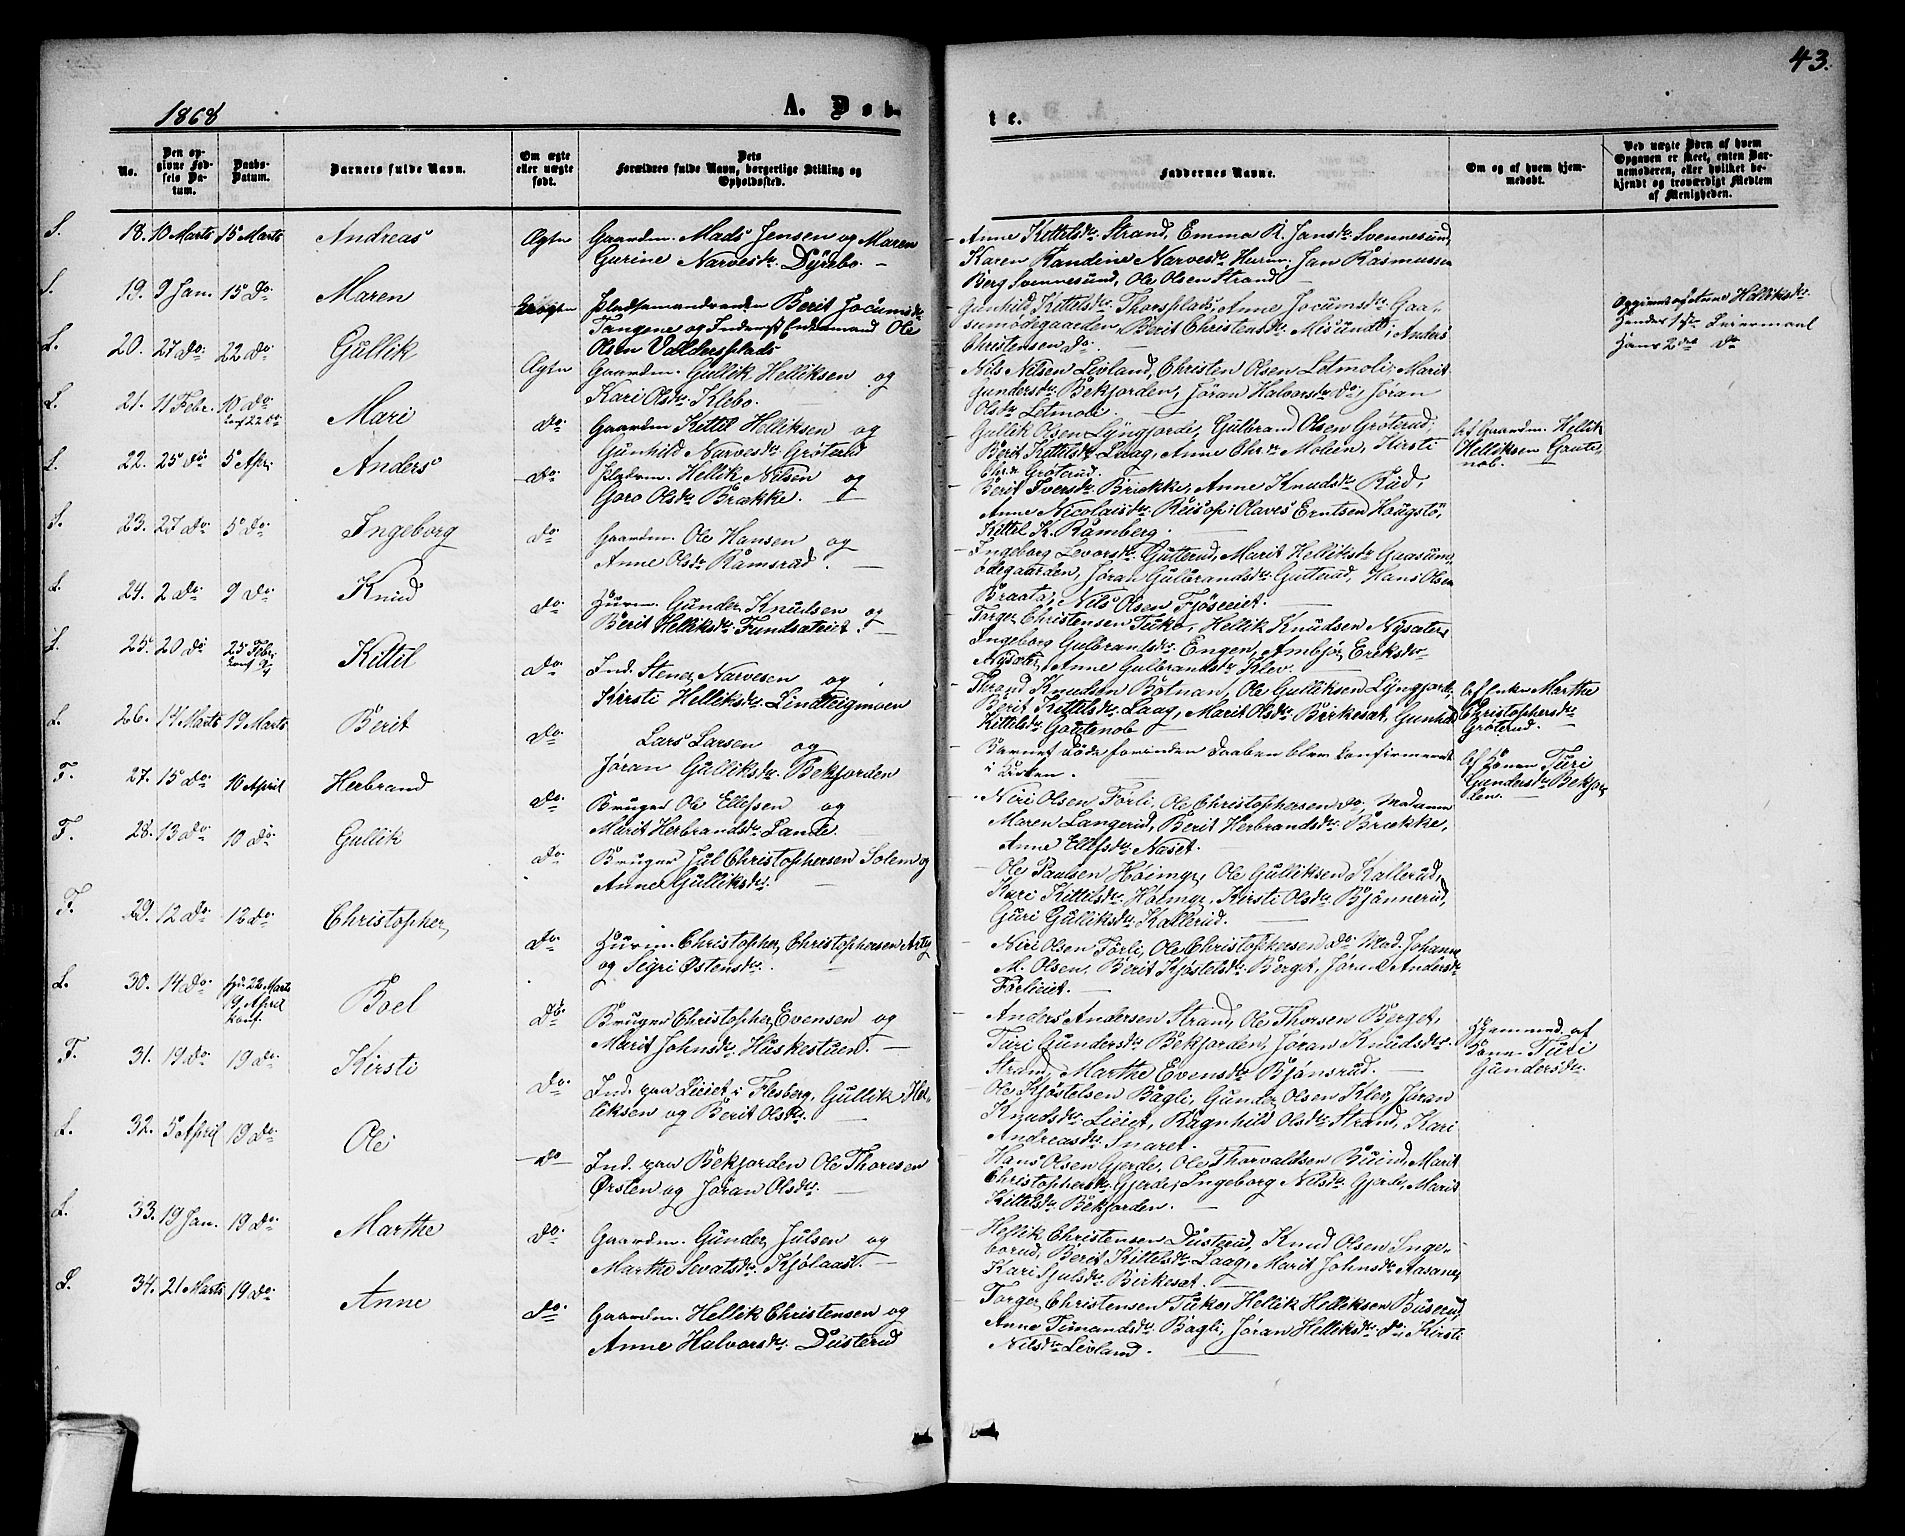 43.
1868
A. Døb-
te.
No.
Den op-
givne Fød-
sels Da-
tum.
Daabs-
Datum.
Barnets fulde Navn.
Om ægte
eller uægte
født.
Dets
Forældres fulde Navn, borgerlige Stilling og
Opholdssted.
Faddernes Navne.
Om og af hvem hjem-
medøbt.
Ved uægte Børn af hvem
Opgaven er skeet, enten Bar-
nemoderen, eller hvilket be-
kjendt og troværdigt Medlem
af Menigheden.
18. 10 Marts 15 Marts Andreas Ægte Gaardm. Mads Jensen og Maren
Gurine Narvesdr. Dyrebo.
Anne Kittilsdr. Strand, Emma R. Jansdr. Svennesund,
Karen Randine Narvesdr. Hurm, Jan Rasmussen
Berg Svennesund, Ole Olsen Strand
19. 9 Jan. 15 Do. Maren Uægte Pladsemandsenken Berit Jocumsdr.
Tangene og Inderst Enkemand Ole
Olsen Valdersplads
Gunhild Kittilsdr. Thorsplads, Anne Jocumsdr. Gaa-
sumødegaarden, Berit Christensdr. Anders
Christensen Do.
Hendes 1ste Leiermaal
Hans 2det Do
20. 27 Do. 22 Do Gullik Ægte Gaardm. Gullik Helliksen og
Kari Olsdr. Klebo.
Nils Nilsen Livland, Christen Olsen Letmoli, Marit
Gundersdr. Bekjorden, Jøran Halvorsdr. Do, Jøran
Olsdr. Letmoli.
21. 11 Febr. 10 Do Mari Do. Gaardm Kittil Helliksen og
Gunhild Narvesdr. Grøterud
Gullik Olsen Lyngjorde, Gulbrand Olsen Grøterud,
Berit Kittilsdr. Laag, Anne Chrdr. Moleen, Kirsti
Chrdr. Grøterud.
Gaardm. Hellik
Helliksen Goute-
nob.
22. 25 Do 5 Apr. Anders Do Pladsm. Hellik Nilsen og
Goro Olsdr. Brække.
Berit Iversdr. Brække, Anne Knudsdr. Rud,
Anne Nicolaisdr. Olaves Erntsen Hougstø,
Kittil K. Ramberg.
23. 27 Do 5 Do Ingeborg Do Gaardm. Ole Hansen og
Anne Olsdr. Ramsrud.
Ingeborg Levorsdr. Gutterud, Marit Helliksdr. Gaasum,
ødegaarden, Jøran Gulbrandsdr. Gutterud, Hans Olsen
Braata, Nils Olsen Fjøseiet.
24. 2 Do 9 Do Knud Do. Huusm. Gunder Knudsen og
Berit Helliksdr. Fundsæteiet.
Torger Christensen Tuko, Hellik Knudsen Nysæter,
Ingeborg Gulbrandsdr. Engen, Ambjør Eriksdr.
Nysæter, Anne Gulbrandsdr. Klev.
25. 20 Do 25 Febr. Kittil Do. Ind. Stener Narvesen og
Kirsti Helliksdr. Lindteigmoen
Thrond Knudsen Botnan, Ole Gulliksen Lyngjorde,
Berit Kittilsdr. Laag, Marit Olsdr. Birkesat, Gunhild
Kittilsdr. Goutenob
Af Enken Marthe
Christophersdr.
Grøterud.
26. 14 Marts 19 Marts Berit Do. Lars Larsen og
Jøran Gulliksdr. Bekjorden
Barnet døde forinden Daaben blev Confirmeret
i Kirken.
Af Konen Turi
Gundersdr. Bekjor-
den.
27. 15 Do 10 April Herbrand Do. Bruger Ole Ellefsen og
Marit Herbrandsdr. Lande.
Niri Olsen Førli, Ole Christophersen Do, Madame
Maren Langerud, Berit Herbrandsdr. Brække,
Anne Ellefsdr. Næset.
28. 13 Do 10 Do Gullik Do. Bruger Jul Christophersen Solem og
Anne Gulliksdr.
Ole Paulsen Høimyr, Ole Gulliksen Kallerud,
Kari Kittilsdr. Høimyr, Kirsti Olsdr. Bjønnerud,
Guri Gulliksdr. Kallerud.
29. 12 Do 12 Do. Christopher Do Huusm. Christopher Christophersen
og Sigri Østensdr.
Niri Olsen Førli, Ole Christophersen Do. Mad. Johanne
M. Olsen, Berit Kjøstelsdr. Berget, Jøran Andersdr.
Førlieiet.
30. 14 Do Hj. 22 Marts
9 April
Konf. Boel Do Bruger Christopher Evensen og
Marit Johnsdr. Huskestuen.
Anders Andersen Strand, Ole Thorsen Berget,
Turi Gundersdr. Bekjorden, Jøran Knudsdr.
Strand, Marthe Evensdr. Bjønsrud.
Hjemmed. af
Kone Turi
Gundersdr.
31. 19 Do 19 Do. Kirsti Do. Ind. paa Lieiet i Flesberg, Gullik Hel-
liksen og Berit Olsdr.
Ole Kjøstelsen Bagli, Gunder Olsen Klev, Jøran
Knudsdr. Lieiet, Ragnhild Olsdr. Strand, Kari
Andreasdr. Snaret.
32. 5 April 19 Do. Ole Do Ind. paa Bekjorden Ole Thoresen
Ørsten og Jøran Olsdr.
Hans Olsen Gjerde, Ole Thorvaldsen Buind, Marit
Christophersdr. Gjerde, Ingeborg Nilsdr. Gjerde, Marit
Kittilsdr. Bekjorden.
33. 19 Jan. 19 Do. Marthe Do. Gaardm. Gunder Julsen og
Marthe Sevatsdr. Kjølaas.
Hellik Christensen Dusterud, Knud Olsen Inge-
borud, Berit Kittilsdr. Laag, Marit Johnsdr. Aasane,
Kari Julsdr. Birkesat.
34. 21 Marts 19 Do. Anne Do. Gaardm. Hellik Christensen og
Anne Halvorsdr. Dusterud
Torger Christensen Tuko, Hellik Helliksen Buserud,
Anne Simandsdr. Bagli, Jøran Helliksdr. Do, Kirsti
Nilsdr. Livland.